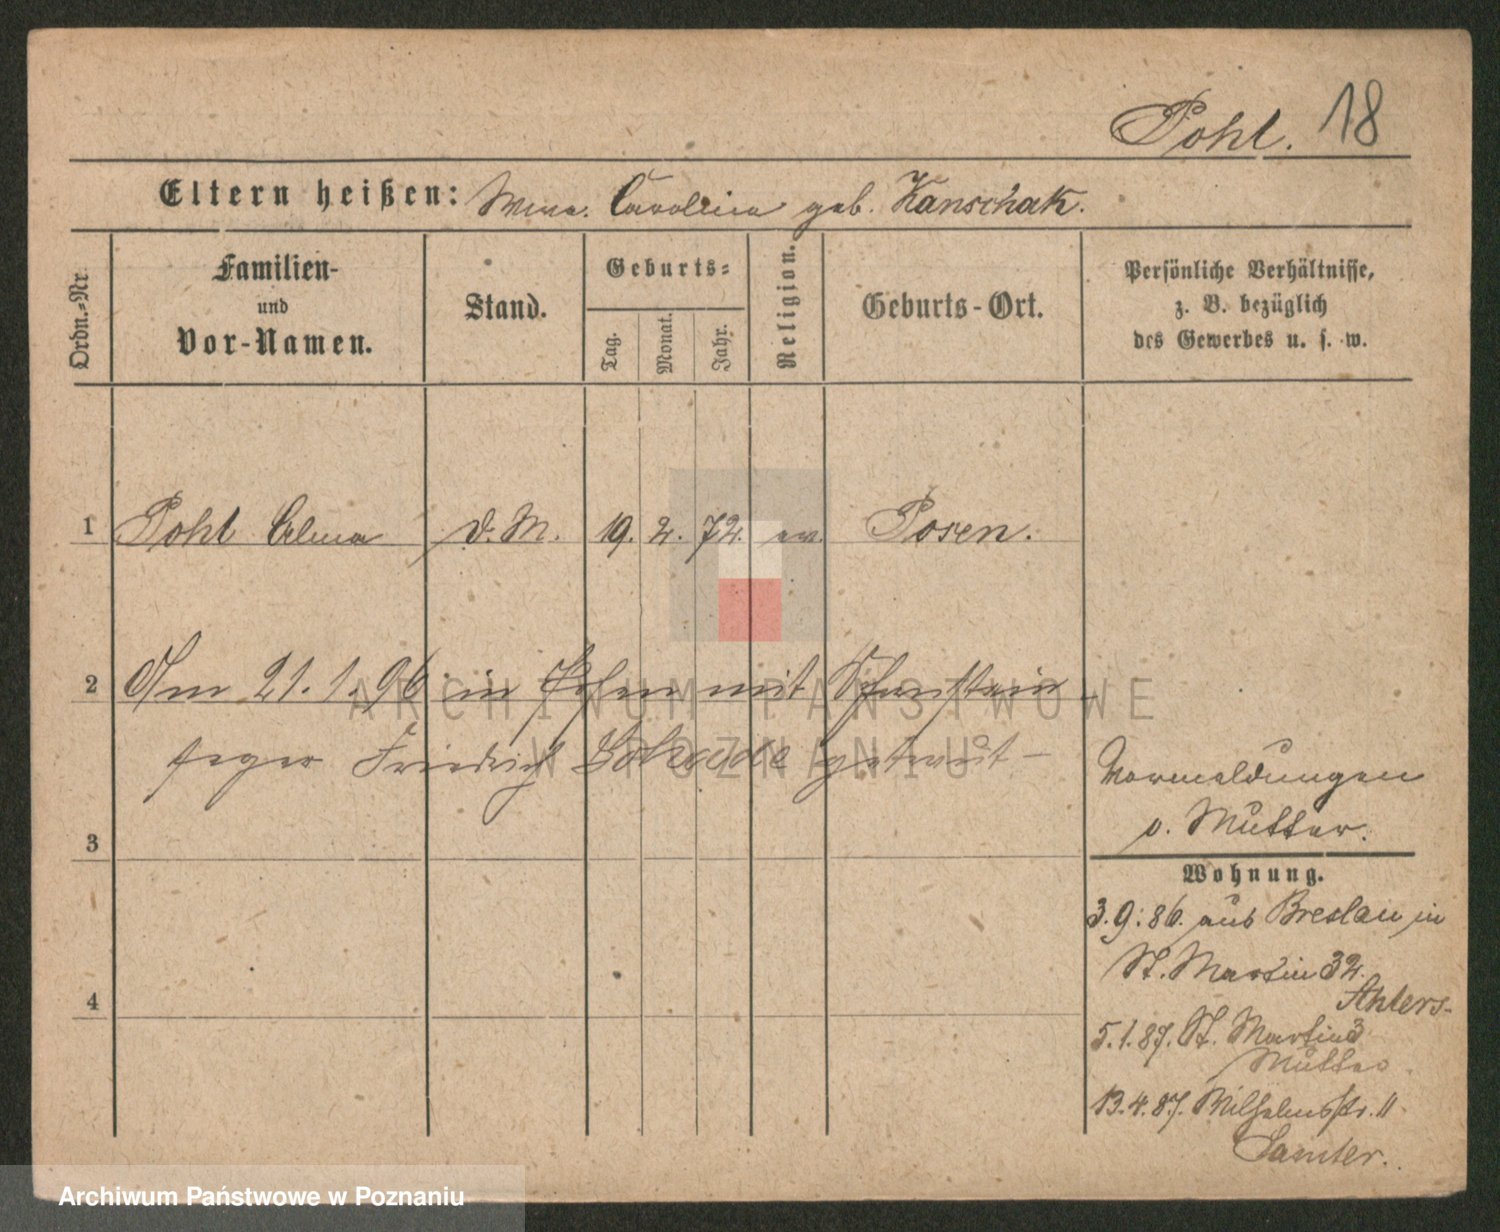 Pohl. 18
Eltern heißen: Wwe. Carolina geb. Kanschak.
Ordn.-Nr.
Familien-
und
Vor-Namen.
Stand.
Geburts-
Tag.
Monat.
Jahr.
Religion.
Geburts-Ort.
Persönliche Verhältnisse,
z. B. bezüglich
des Gewerbes u. s. w.
1 Pohl Alma d. M. 19. 2. 72. ev. Posen.
2 Am 21.1.96 in Posen mit Schornstein
feger Friedrich getraut –
Vormeldungen
v. Mutter.
3
Wohnung.
3.9.86. aus Breslau in
St. Martin 32.
Ahlers.
4
5.1.87. St. Martin 3
Mutter.
13.4.87. Wilhelmstr. 11.
Samter.
ARCHIWUM PAŃSTWOWE
W POZNANIU
Archiwum Państwowe w Poznaniu